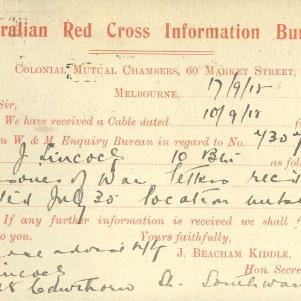 ralian Red Cross Information Bu
COLONIAL MUTUAL CHAMBERS, 60 MARKET STREET,
MELBOURNE, 17/9/18
Sir,
We have received a Cable dated 10/9/18 f
n W & M Enquiry Bureau in regard to No. 430
J. Lincock 10 Bn as fo
soner of War letters recei
ted July 30 location unk
If any further information is received we shall f
to you. Yours faithfully,
J. BEACHAM KIDDLE,
Hon. Secre